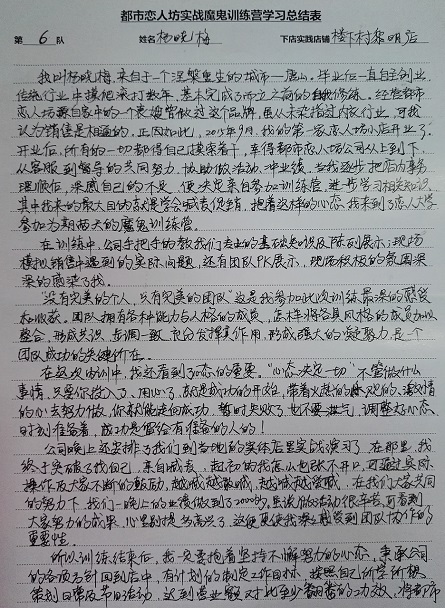 都市恋人坊实战魔鬼训练营学习总结表
第 6 队 姓名 杨晓梅 下店实践店铺 楼下村黎明店
我叫杨晓梅，来自于一个涅槃重生的城市—唐山。毕业后一直自主创业，
传统行业中摸爬滚打数年，基本完成了而立之前的自我修炼。经营都市
恋人坊源自客中的一个
认为销售是相通的，正因如此，2015年9月，我的第一家恋人坊小店开业了。
开业后，所有的一切都得自己摸索着干，幸得都市恋人坊公司从上到下，
从客服到督导的共同努力，协助做活动，冲业绩，当我逐步把店内事务
理顺后，深感自己的不足，便决定亲自参加训练营，进一步学习相关知识。
其中我来的最大目的就是学会喊卖促销，抱着这样的心态，我来到了恋人大学
参加为期两天的魔鬼训练营。
在训练中，公司手把手的教我们卖出的基础知识及陈列展示；现场
模拟销售中遇到的实际问题，还有团队PK展示，现场积极的氛围深
深的感染了我。
“没有完美的个人，只有完美的团队”这是我参加此次训练最深的感受
和收获。团队拥有各种能力与人格的成员，怎样将各具风格的成员加以
整合，形成共识，步调一致，充分发挥其作用，形成强大的凝聚力，是一个
团队成功的关键所在。
在这次培训中，我还看到了心态的重要。“心态决定一切”不管做什么
事情，只要你投入了、用心了，就是成功的开始，带着火热的、乐观的、激情
的心去努力做，你就能走向成功，暂时失败了，也不要泄气，调整好心态，
时刻准备着，成功是留给有准备的人的！
公司晚上还安排了我们到当地的实体店里实战演习了，在那里，我
终于突破了我自己，亲自喊卖，起初的我怎么也张不开口，可通过实际
操作及大家不断的鼓励，越喊越敢喊，越喊越爱喊，在我们大家共同
的努力下，我们一晚上的业绩做到了20000多，虽说做活动很辛苦，可看到
大家努力的成果，心里别提多高兴了，这便更使我深刻感受到团队协作的
重要性。
所以训练结束后，我一定要抱着坚持不懈努力的心态，秉承公司
的各项方针回到店中，有计划的制定工作目标，按照自己所学所悟
策划日常及节日活动，达到营业额对比至少翻番的功效，将都市